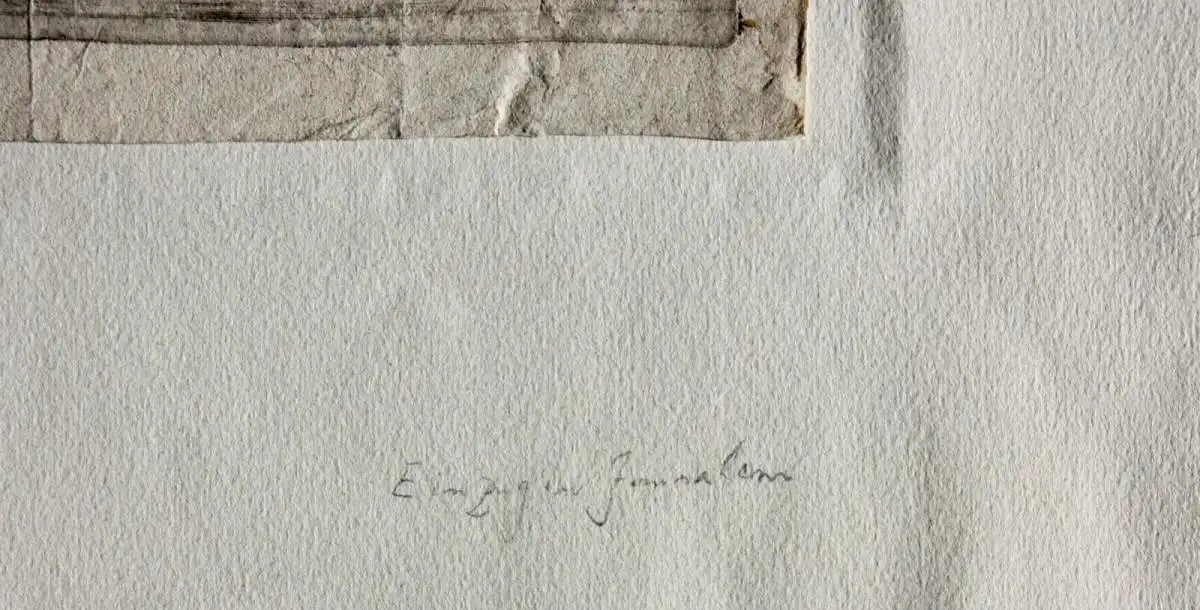 Einzug in Jerusalem